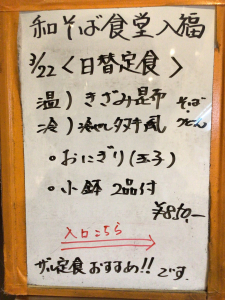 和そば食堂入福
3/22<日替定食>
温)きざみ昆布 そば
冷)冷やしタヌキ風 うどん
・おにぎり(玉子)
・小鉢 2品付
¥850-
入口こちら
ザル定食おすすめ!!です。